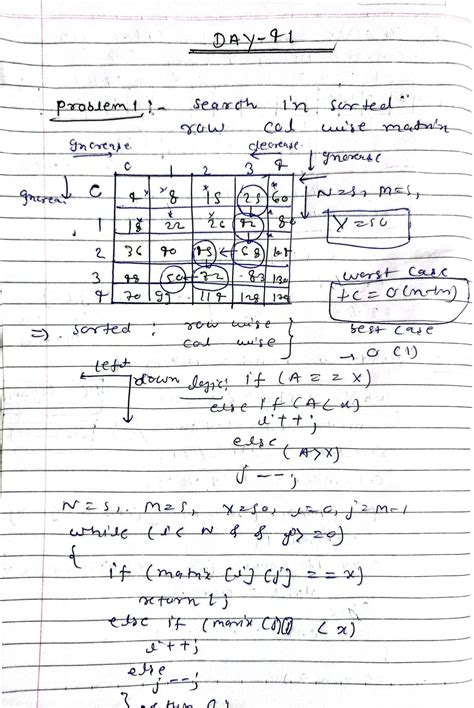 DAY-41
Problem 1 :- search in sorted
row col wise matrix
Increase decrease
0 1 2 3 4 Increase
0 4 8 15 25 60 N=5, M=5,
1 18 22 26 42 80 X=50
2 36 40 45 68
3 48 50 72 83 130 worst case
4 70 95 114 128 TC = O(n+m)
=> sorted : row wise best case
col wise → O(1)
Left
down logic: if (A == X)
else if (A < x)
i++;
else (A>X)
j--;
N=5, M=5, x=50, i=0, j=M-1
while (i < N && j>=0)
{
if (matrix [i] [j] == x)
return 1;
else if (matrix [i][j] < x)
i++;
else
j--;
} return 0;